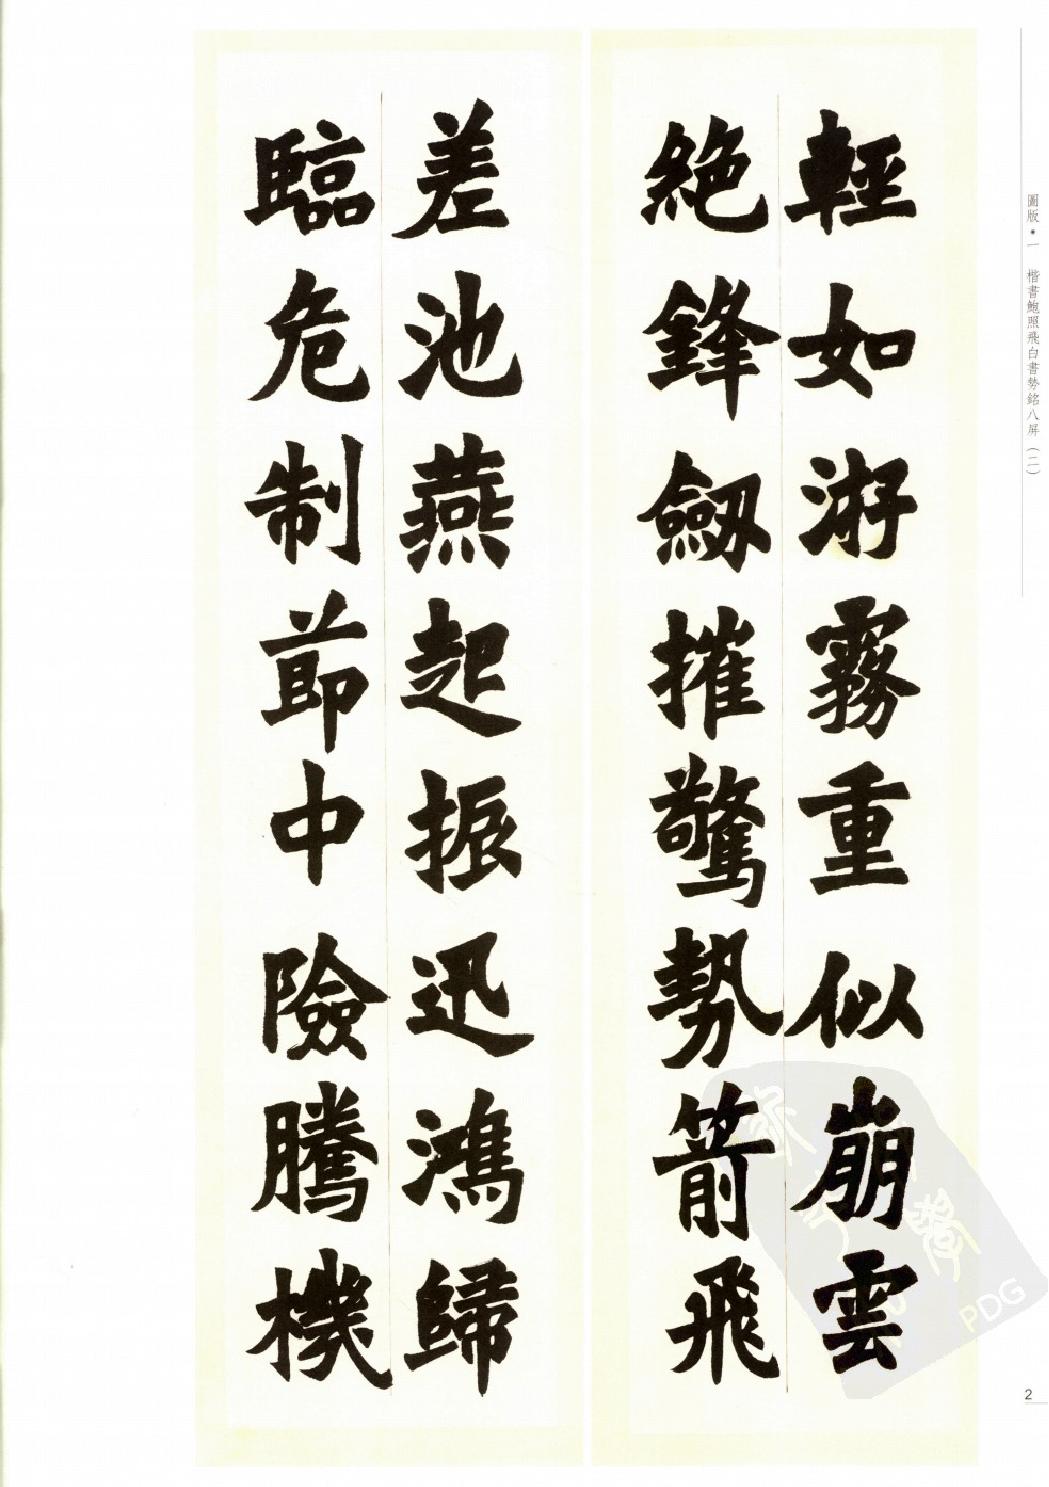 輕如游霧重似崩雲
絶鋒劒摧驚勢箭飛
差池燕起振迅鴻歸
臨危制莭中險騰機
圖版・一 楷書鮑照飛白書勢銘八屏（二）
2
PDG